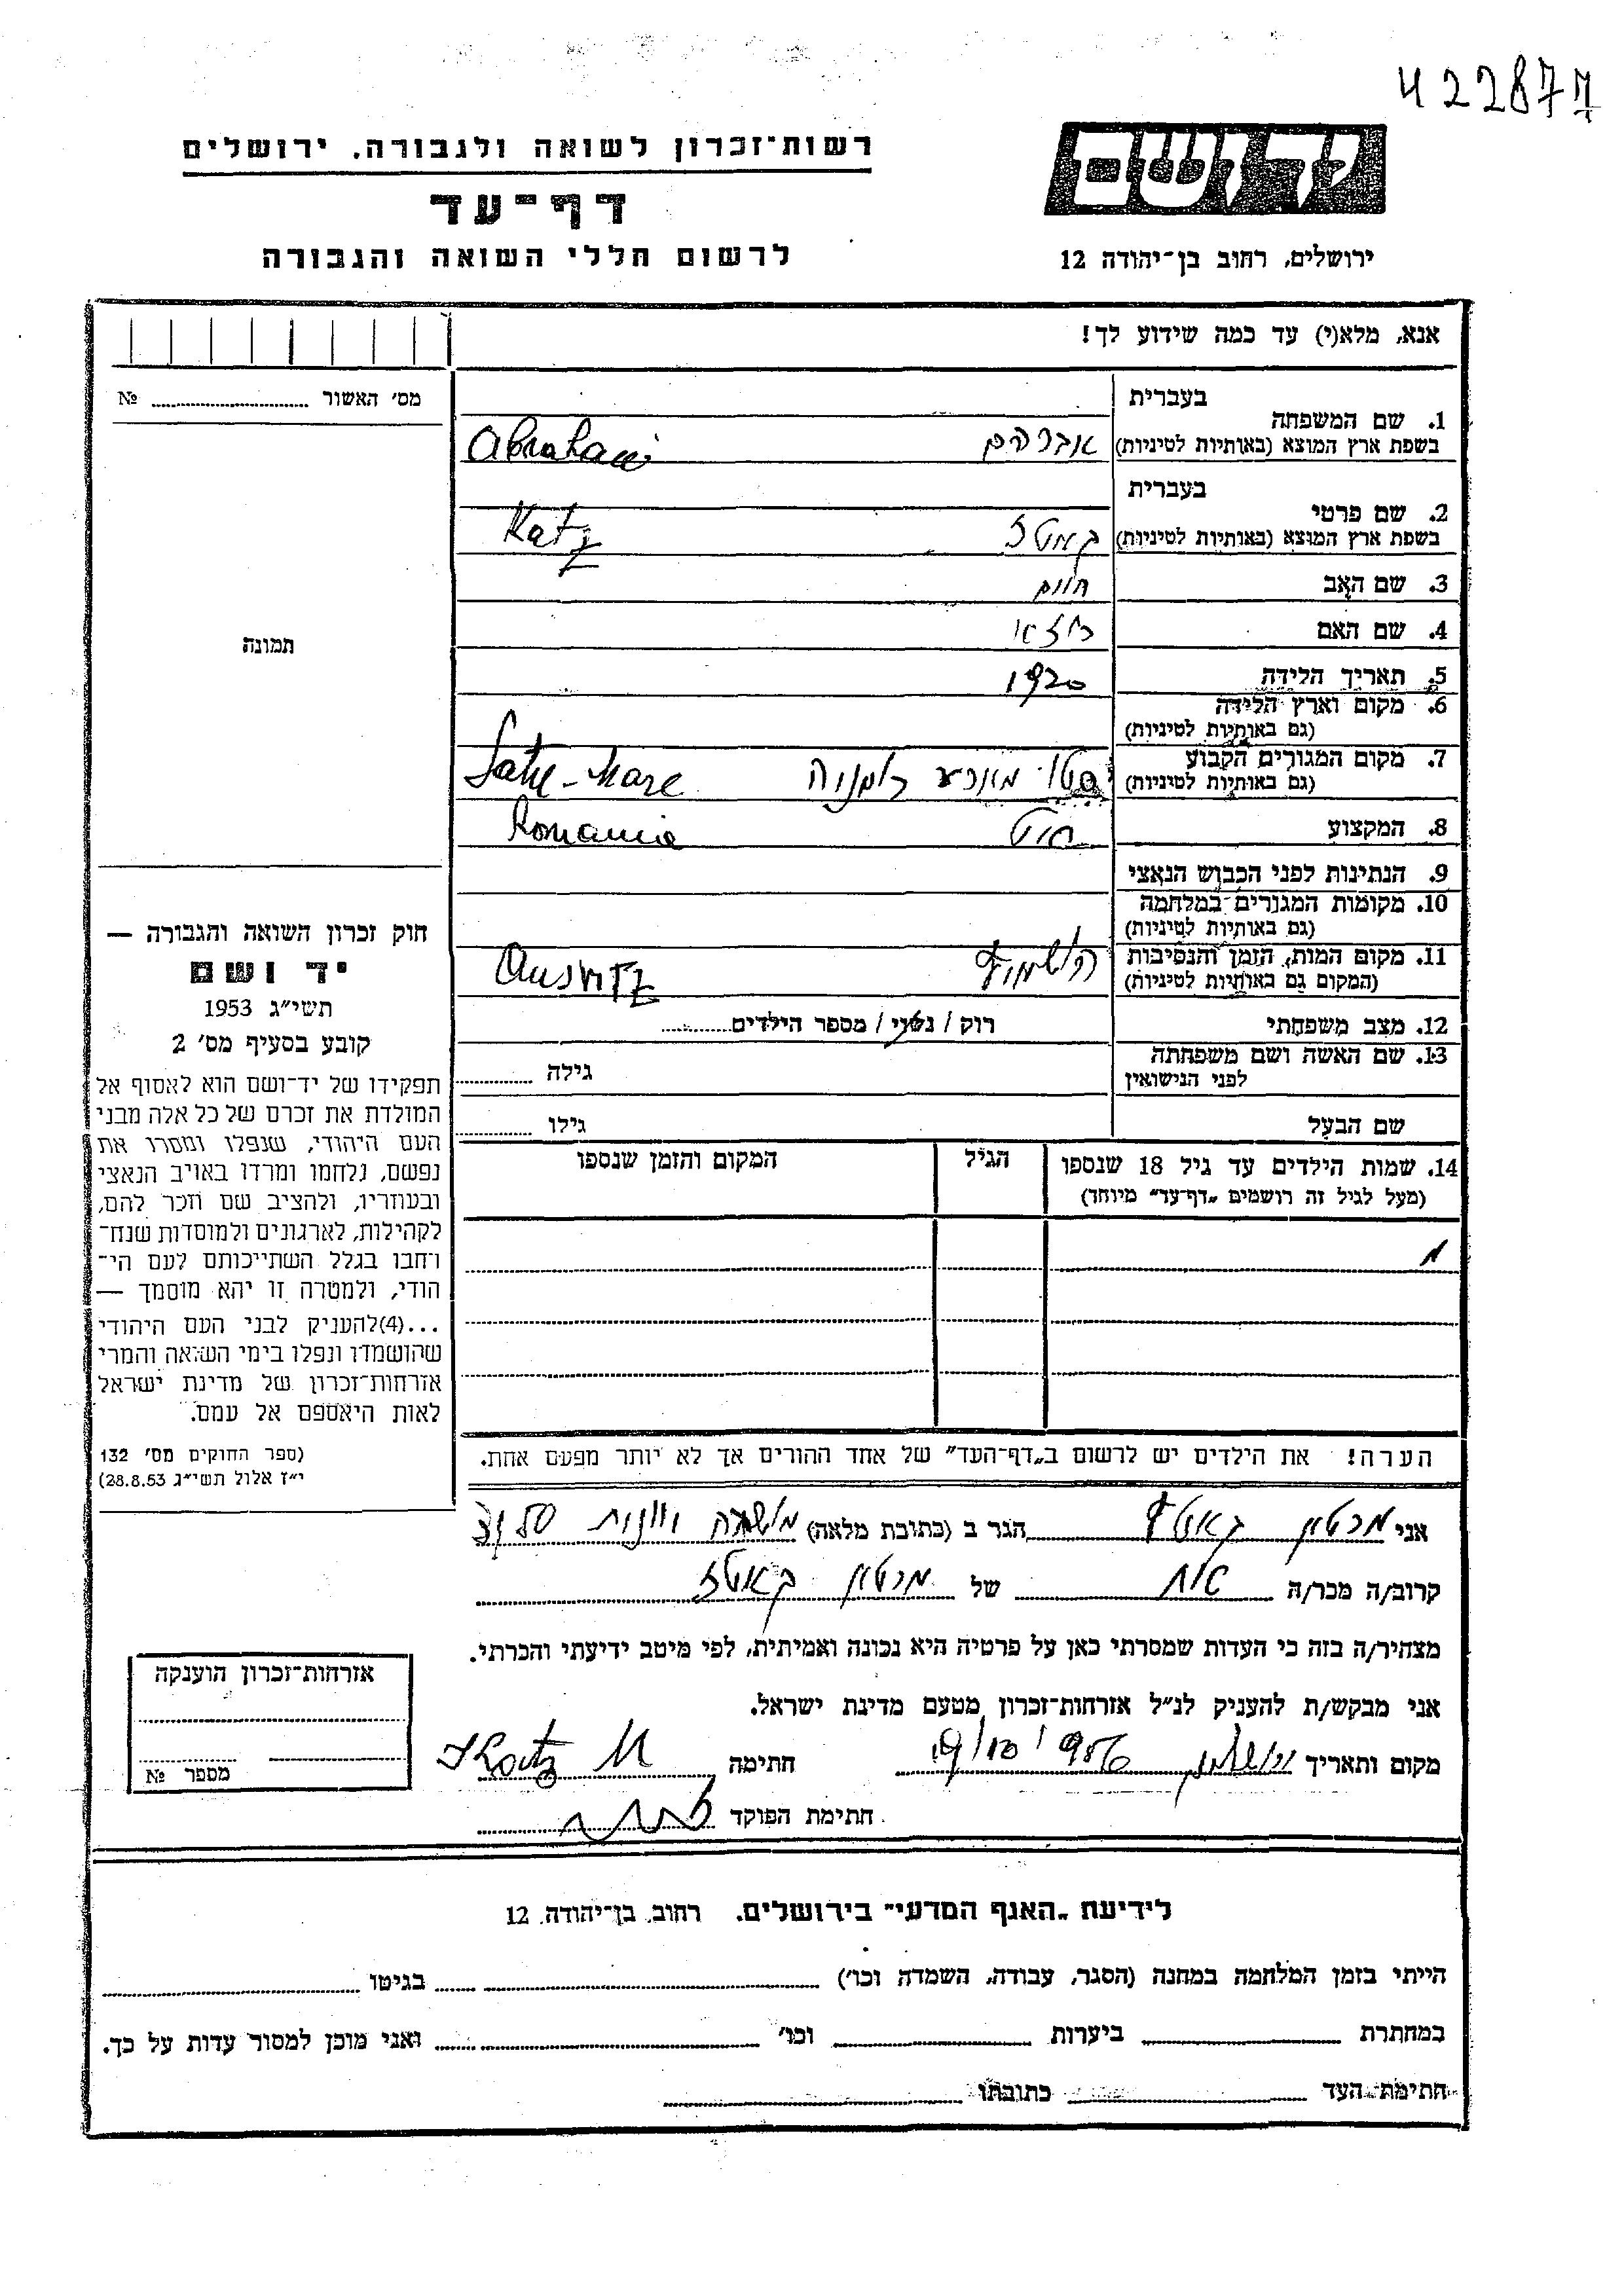 422877
רשות־זכרון לשואה ולגבורה, ירושלים
דף־עד
לרשום חללי השואה והגבורה
יד ושם
ירושלים, רחוב בן־יהודה 12
אנא, מלא(י) עד כמה שידוע לך!
מס׳ האשור № 
תמונה
1. שם המשפחה
בעברית
בשפת ארץ המוצא (באותיות לטיניות)
אברהם Abraham
2. שם פרטי
בעברית
בשפת ארץ המוצא (באותיות לטיניות)
Katz
3. שם האב
חיים
4. שם האם
5. תאריך הלידה
1920
6. מקום וארץ הלידה
(גם באותיות לטיניות)
7. מקום המגורים הקבוע
(גם באותיות לטיניות)
סטו מארע רומניה Satu-Mare
8. המקצוע
חייט Romania
9. הנתינות לפני הכבוש הנאצי
10. מקומות המגורים במלחמה
(גם באותיות לטיניות)
11. מקום המות, הזמן והנסיבות
(המקום גם באותיות לטיניות)
Ausvitz
12. מצב משפחתי
רוק / נשוי / מספר הילדים
13. שם האשה ושם משפחתה
לפני הנישואין
גילה
שם הבעל
גילו
14. שמות הילדים עד גיל 18 שנספו
(מעל לגיל זה רושמים „דף־עד״ מיוחד)
הגיל
המקום והזמן שנספו
הערה! את הילדים יש לרשום ב„דף־העד״ של אחד ההורים אך לא יותר מפעם אחת.
חוק זכרון השואה והגבורה —
יד ושם
תשי״ג 1953
קובע בסעיף מס׳ 2
תפקידו של יד־ושם הוא לאסוף אל
המולדת את זכרם של כל אלה מבני
העם היהודי, שנפלו ומסרו את
נפשם, נלחמו ומרדו באויב הנאצי
ובעוזריו, ולהציב שם וזכר להם,
לקהילות, לארגונים ולמוסדות שנח־
רחבו בגלל השתייכותם לעם הי־
הודי, ולמטרה זו יהא מוסמך —
...(4)להעניק לבני העם היהודי
שהושמדו ונפלו בימי השואה והמרי
אזרחות־זכרון של מדינת ישראל
לאות היאספם אל עמם.
(ספר החוקים מס׳ 132
י״ז אלול תשי״ג 28.8.53)
אני מרטין הגר ב (כתובת מלאה) 50
קרוב/ה מכר/ה של מרטין
מצהיר/ה בזה כי העדות שמסרתי כאן על פרטיה היא נכונה ואמיתית, לפי מיטב ידיעתי והכרתי.
אני מבקש/ת להעניק לנ״ל אזרחות־זכרון מטעם מדינת ישראל.
מקום ותאריך ירושלים 19/10/956 חתימה Katz M
חתימת הפוקד
אזרחות־זכרון הוענקה
מספר №
לידיעת „האגף המדעי״ בירושלים, רחוב בן־יהודה 12
הייתי בזמן המלחמה במחנה (הסגר, עבודה, השמדה וכו׳) בגיטו
במחתרת ביערות וכו׳ ואני מוכן למסור עדות על כך.
חתימת העד כתובתו